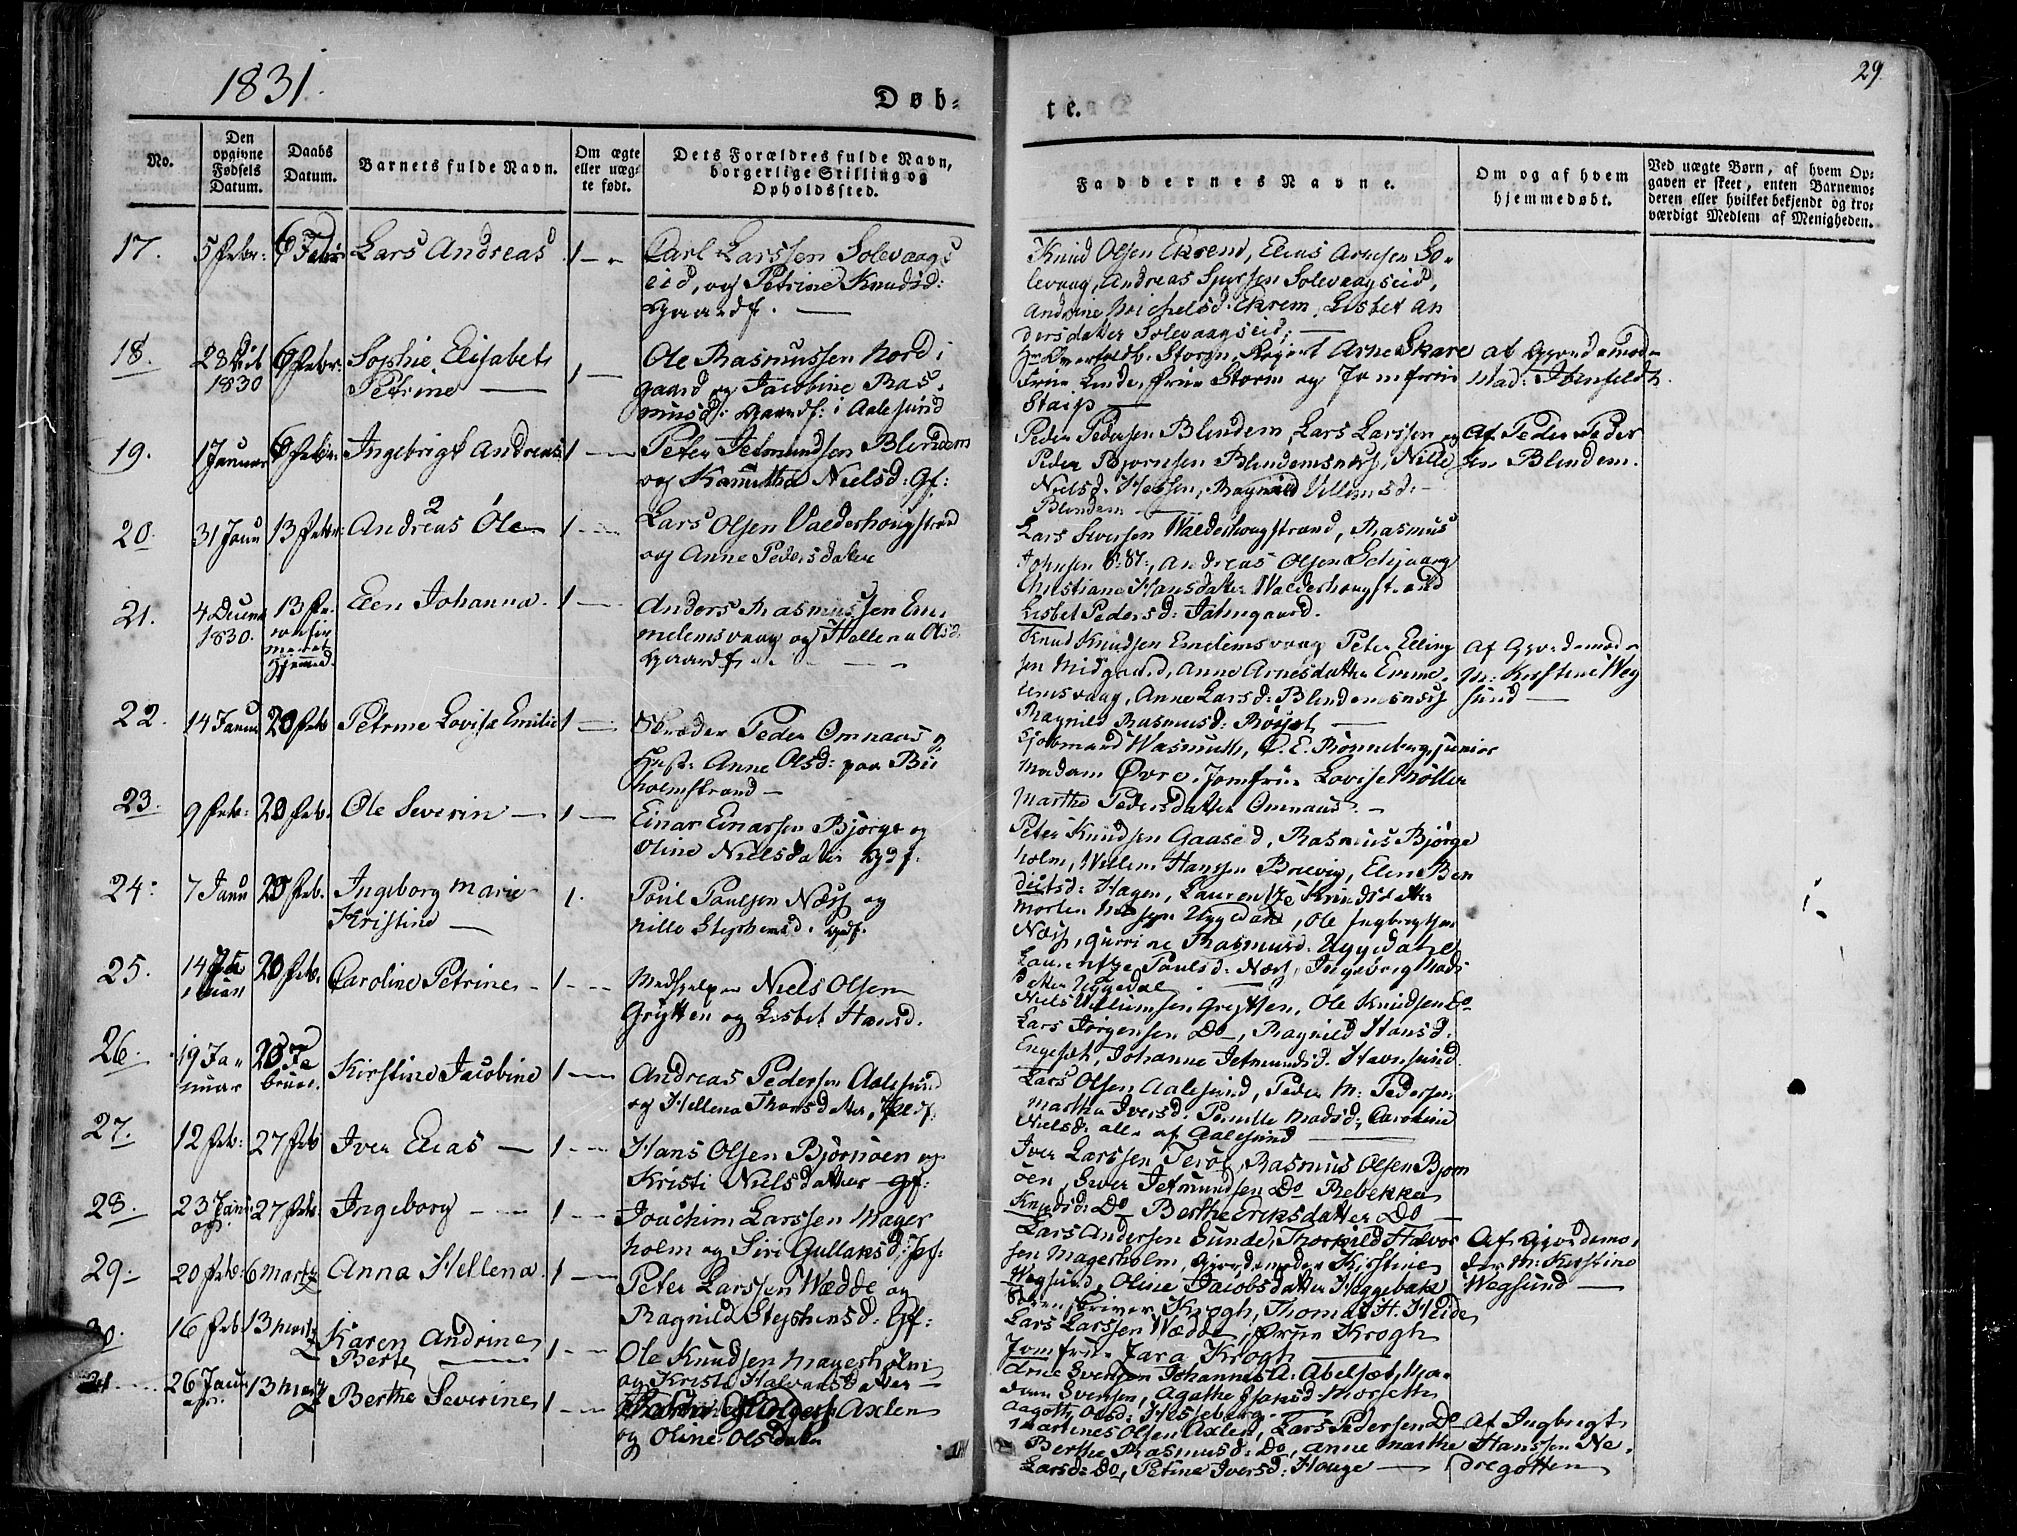 1831.
29
Døb-
te.
No.
Den opgivne Fødsels Datum.
Daabs Datum.
Barnets fulde Navn.
Om ægte eller uægte født.
Dets Forældres fulde Navn, borgerlige Stilling og Opholdssted.
Faddernes Navne.
Om og af hvem hjemmedøbt.
Ved uægte Børn, af hvem Opgaven er skeet, enten Barnemoderen eller hvilket bekjendt og troværdigt Medlem af Menigheden.
17. 5 Febr: 6 Febr Lars Andreas 1 Carl Larssen Solevaags
eid, og Petrine Knudsd:
Gaardf.
Knud Olsen Ekrem, Elias Arnesen So-
levaag, Andreas Solevaagseid,
Andrine Ekrem, Lisbet An
dersdatter Solevaagseid;
18. 28 1830 6 Febr: Sophie Elisabeth
Petrine 1 Ole Rasmussen Nord i
gaard og Jacobine Ras
musd: i Aalesund
Storm, Arne Skare
Frue Storm og Jomfrue
Staip
af Gjordemoder
Mad: Ibenfeldt
19. 1 Januar 6 Febr: Ingebrigt Andreas 1 Peter Jetmundsen Blindem
og Kanutha Nielsd: Gf:
Peder Pedersen Blindem, Lars Larssen og
Peder Bjørnsen Blindemsnæs, Nille
Nielsd: Hessen, Ragnild Villumsd:
Blindem
Af Peder Peder
sen Blindem.
20. 31 Janu 13 Febr: Andreas Ole 2 1 Lars Olsen Valderhougstrand
og Anne Pedersdatter
Lars Siversen Walderhougstrand, Rasmus
Johnsen, Andreas Olsen
Christiane Hansdatter Walderhougstrand
Lisbet Pedersd: Jatmgaard.
21. 4 1830. 13 Fe
Hjemmed. Elen Johanna 1 Anders Rasmussen Em
melemsvaag og Hellena Olsd
Gaardf
Knud Knudsen Emelemsvaag Peter Elling
sen Midgaard, Anne Arnesdatter Emme
lemsvaag, Anne Larsd: Blindemsnæs
Ragnild Rasmusd:
Af Gjordemod
M: Kirstine Weg
sund
22. 14 Januar 20 Feb Petrine Lovise Emilie 1 Skræder Peder Omnaas og
Hust: Anne Olsd: paa Bu
holmstrand
Wasmuth, C. E. Rønneberg junior
Madam Øvre. Jomfrue Lovise Møller
Marthe Pedersdatter Omnaas.
23. 9 Feb: 20 Feb: Ole Severin 1 Einar Einarsen Bjørge og
Oline Nielsdatter Gdf.
Peter Knudsen Gaaseid, Rasmus Bjørge
holm, Willem Hanssen Brevig, Elen Ben
dictsd: Hagen, Laurentze Knudsdatter
24. 7 Janu 20 Feb. Ingeborg Marie
Kristine 1. Poul Poulsen Næss og
Nille Stephensd. Gdf.
Morten Uggedal, Ole Ingbrigtsen
Næss, Gurrine Rasmusd: Uggedal
Laurentze Poulsd: Næss, Ingeborg Mads
datter Uggedal
25. 14 Ja
nuari 20 Feb. Caroline Petrine 1 Niels Olsen
Grytten og Lisbet Hansd.
Niels Villumsen Grytten, Ole Knudsen Do
Lars Jørgensen Do, Ragnild Hansd.
Engeset, Johanne Jetmundsd. Havnsund
26. 19 Ja
nuar 20 Fe
bruar. Kirstine Jacobine 1 Andreas Pedersen Aalesund
og Hellena Thorsdatter,
Lars Olsen Aalesund, Peder M: Pedersen
Martha Iversd: Pernille Madsd: Caroline
Nielsd: alle af Aalesund
27. 12 Feb: 27 Feb Iver Elias 1 Hans Olsen Bjørnøen og
Kristi Nielsdatter Gf:
Iver Larssen Terøe, Rasmus Olsen Bjørn
øen, Siver Jetmundsen Do Rebekka
Knudsd: Do Berthe Eriksdatter Do
28. 23 Janu 27 Feb. Ingeborg 1 Jouchim Larssen Mager
holm og Siri Gullaksd:
Lars Andersen Sunde, Thorkild Halvor
sen Magerholm, Gjordemoder Kirstine
Wegsund, Oline Jacobsdatter Heggebak
Af Gjordemo
der M: Kirstine
Wegsund
29. 20 Feb: 6 Marty Anna Hellena 1 Peter Larssen Wedde og
Ragnild Stephensd: Gf:
Sorenskriver Krogh, Thomas H. Heide
Lars Larssen Wedde, Frue Krogh
Jomfrue Jara Krogh
30. 16 Feb 13 Marty Karen Andrine
Berte 1 Ole Knudsen Magerholm
og Kristi Halvorsdatter
Svensen Johannes A: Abelset, Ma
dam Svensen, Agathe
Aagotte Olsd: Hesseberg
31 26 Janu 13 Marty Berthe Severine 1 Axlen
og Oline Olsdatter
Martines Olsen Axlen, Lars Pedersen Do
Berthe Rasmusd: Do, Anne Marthe
Larsd: Do, Petrine Iversd: Houge
Af Ingbrigt
Hanssen Ne
dregotten